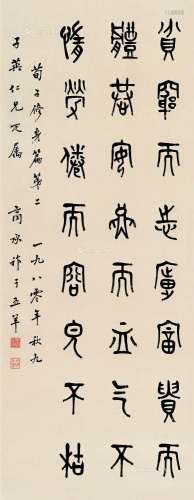 貧窮而志廣富貴而
體恭安燕而血气不
惰勞倦而容皃不枯
荀子修身篇第二 一九八零年秋九
子英仁兄正属 商承祚于五羊